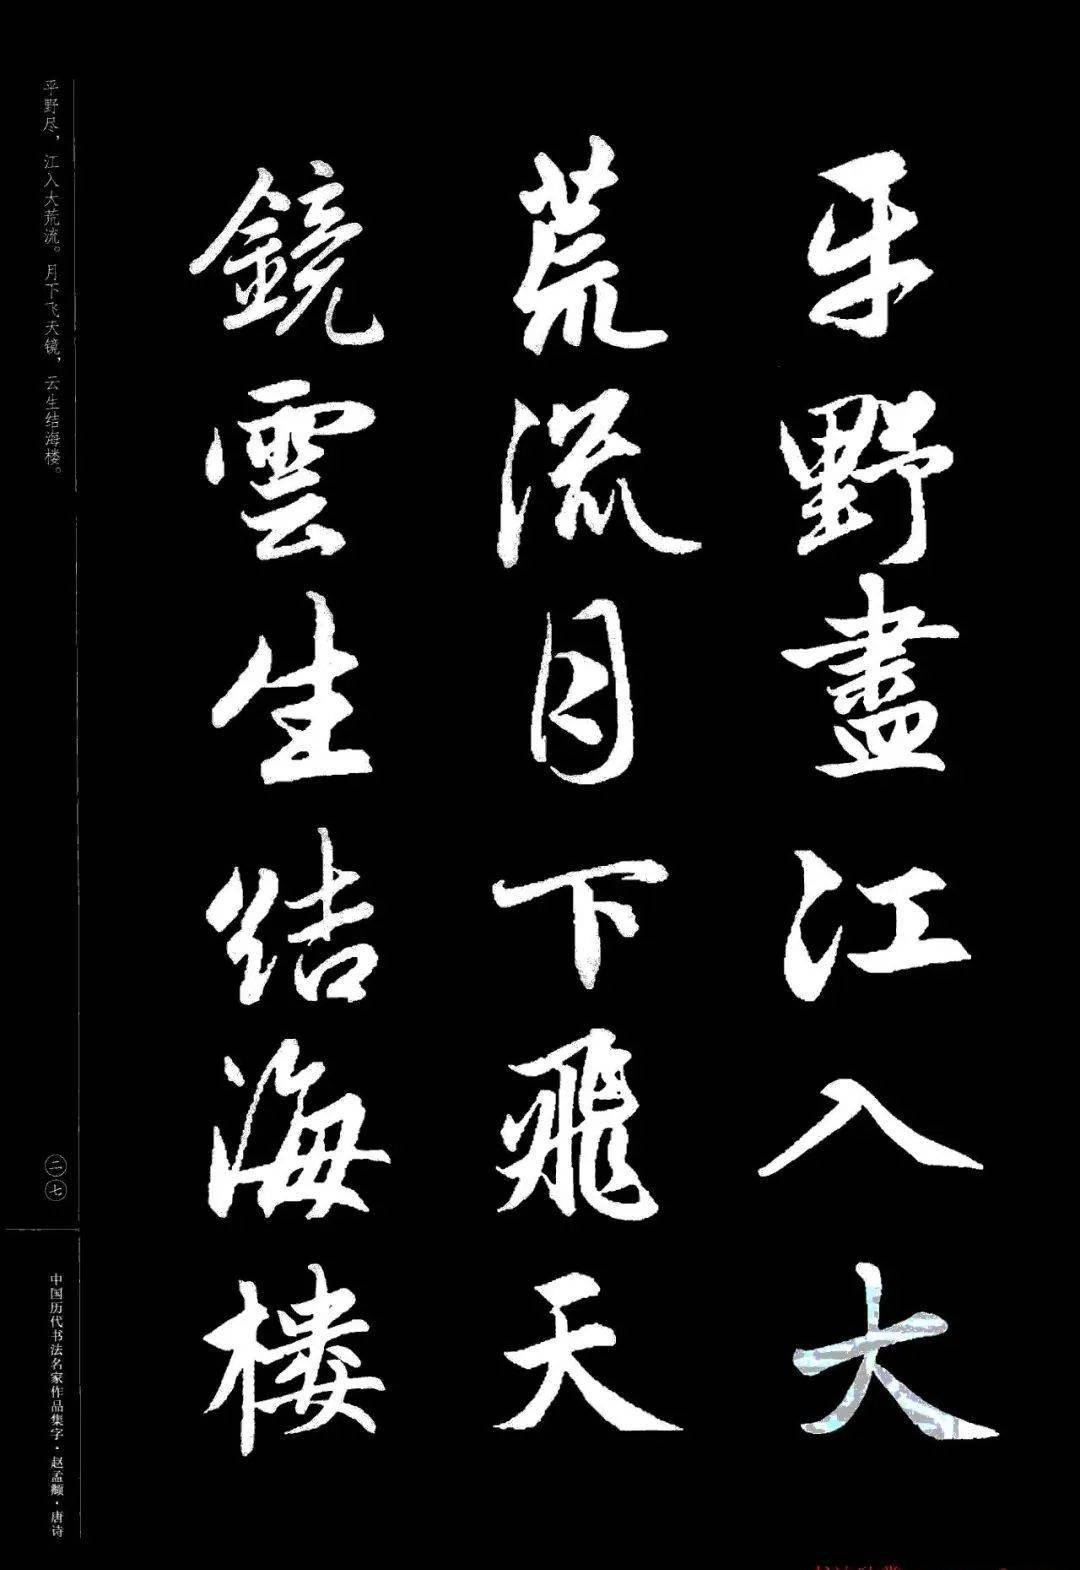 平野盡江入大
荒流月下飛天
鏡雲生結海樓
平野尽，江入大荒流。月下飞天镜，云生结海楼。
二七
中国历代书法名家作品集字·赵孟頫·唐诗